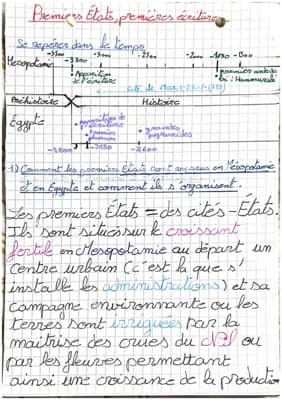 Premiers États, premières écritures
Se repérer dans le temps
-3500 -3000 -2500 -2000 -1750 -1500
Mésopotamie -3300
Apparition de l'écriture
premier code de loi : Hammurabi
cité de Mari
Préhistoire Histoire
Égypte
apparition de l'écriture
premier
grandes pyramides
1) Comment les premiers États sont apparus en Mésopotamie
et en Egypte et comment ils s'organisent.
Les premiers États = des cités-États.
Ils sont situés sur le croissant
fertile en Mésopotamie au départ un
centre urbain (c'est la que s'
installe les administrations) et sa
campagne environnante ou les
terres sont irriguées par la
maitrise des crues du Nil ou
par les fleuves permettant
ainsi une croissance de la production